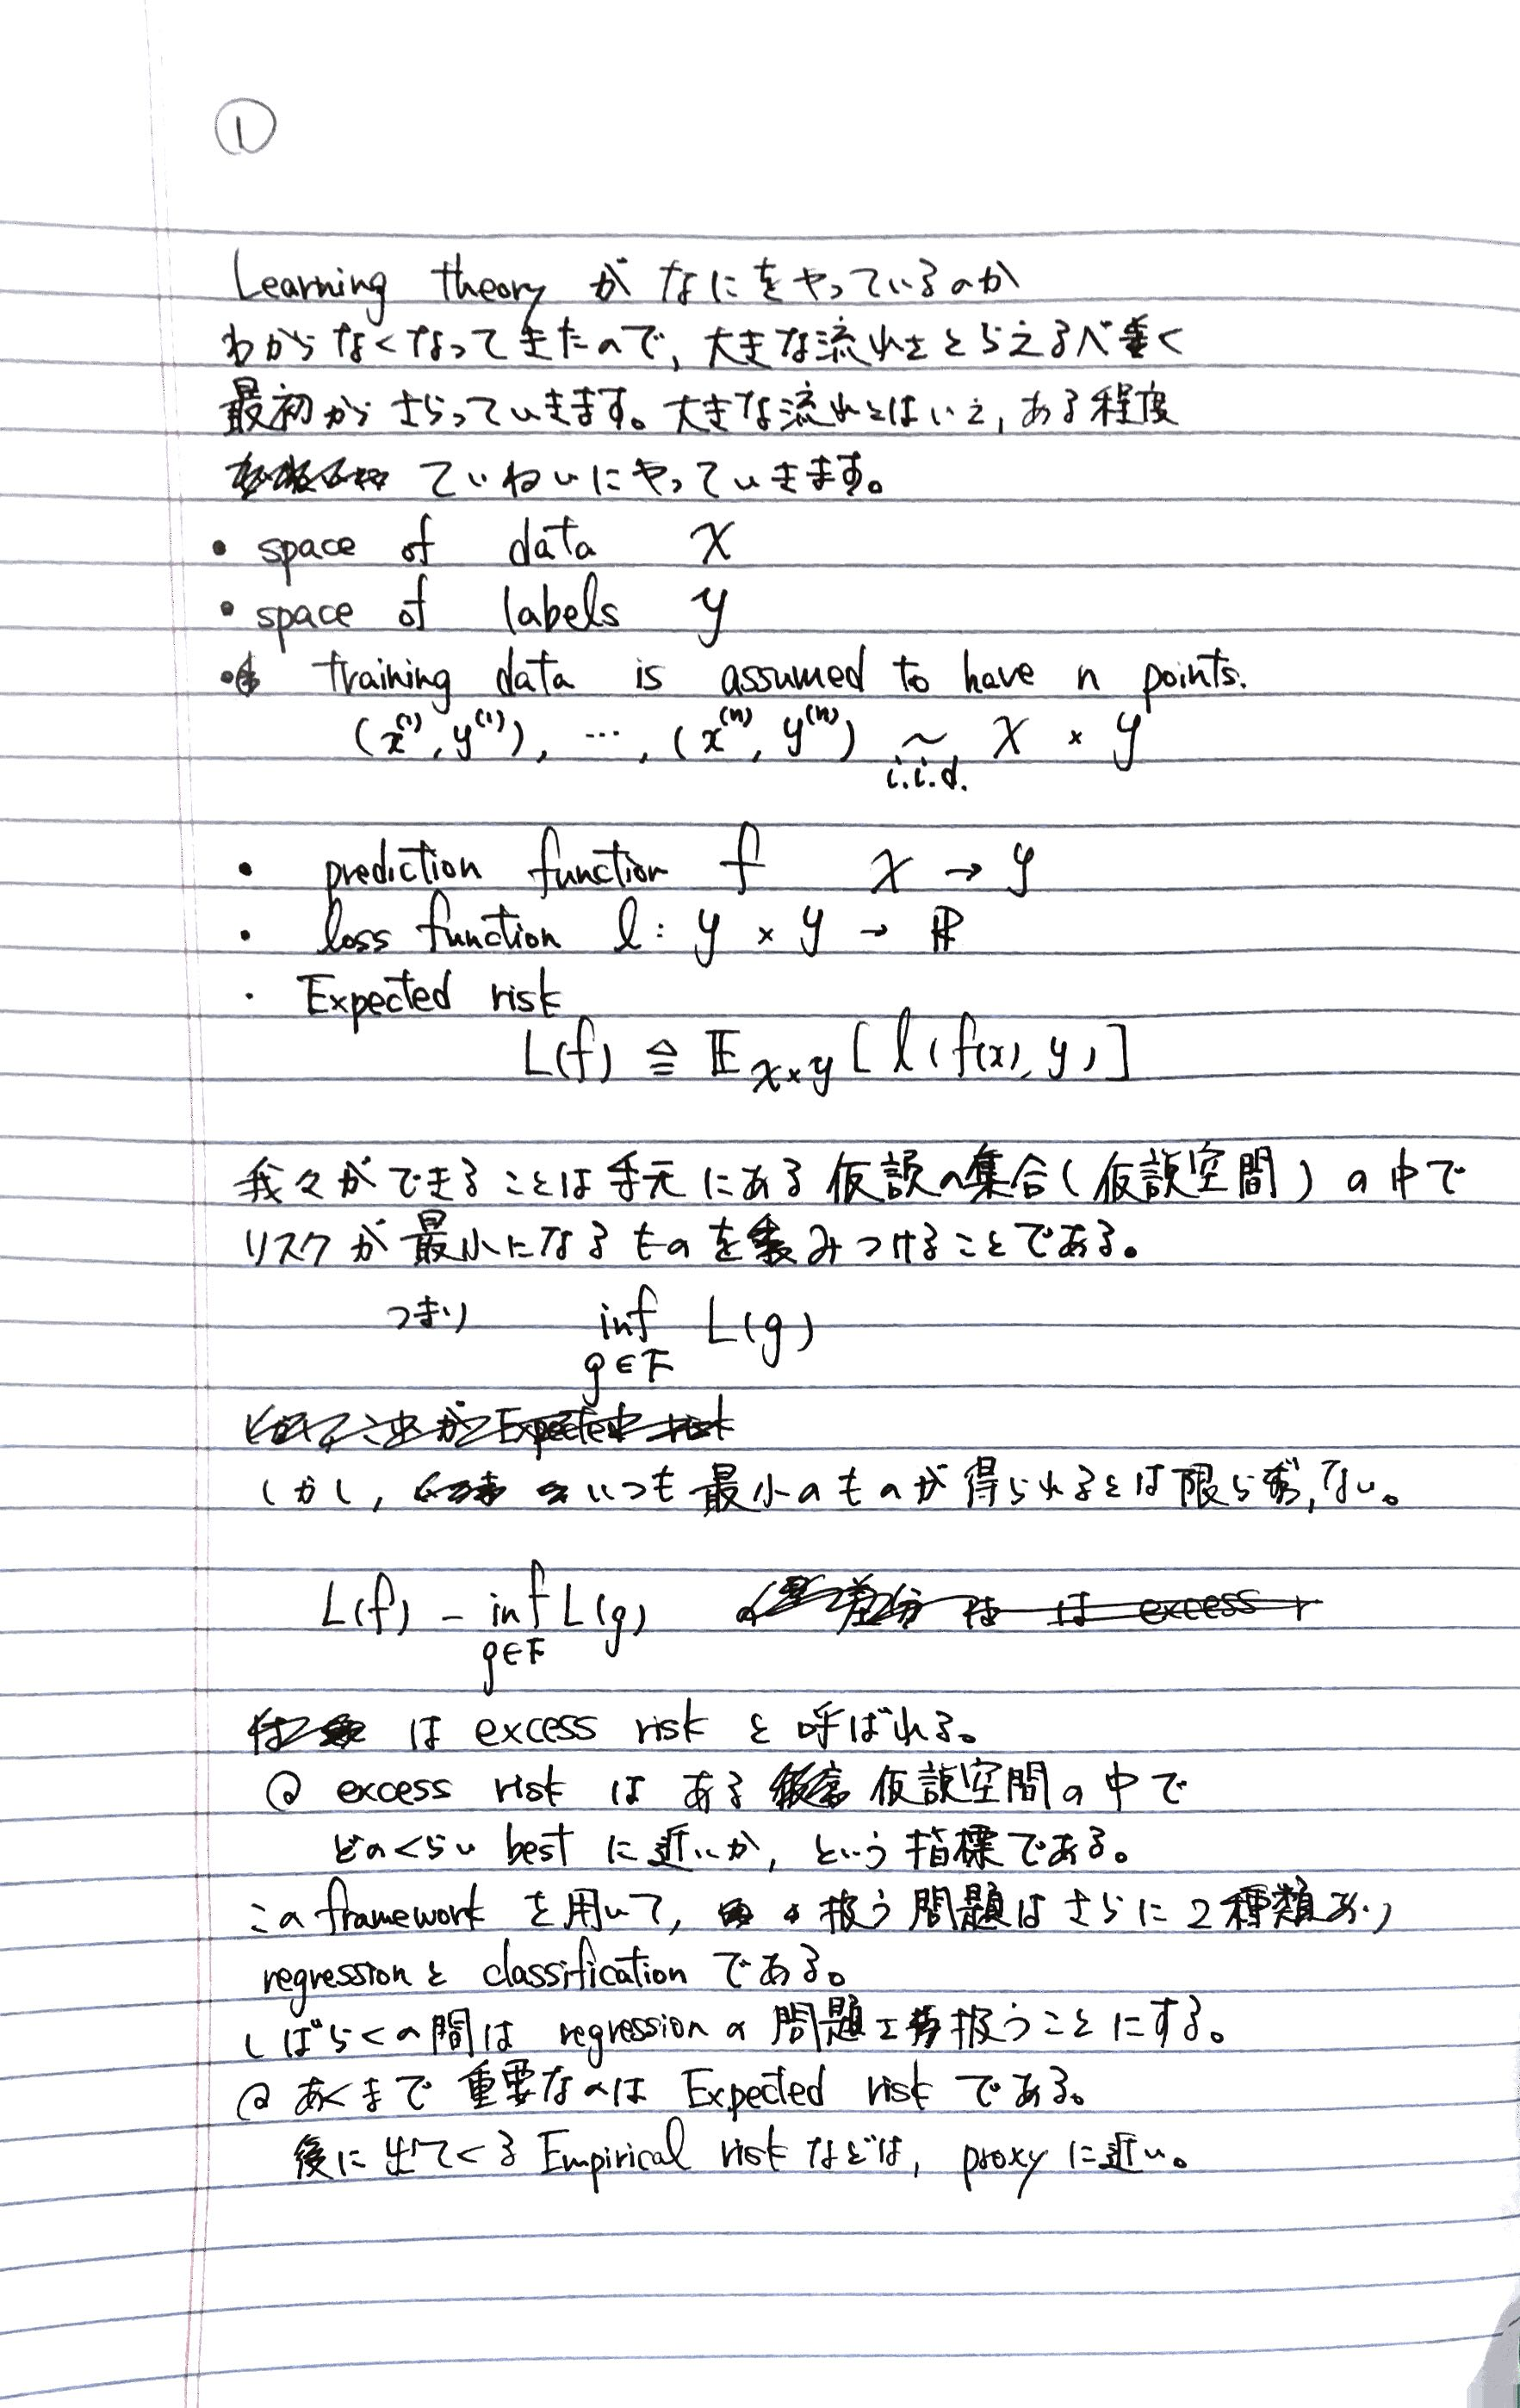 ①
Learning theory がなにをやっているのか
わからなくなってきたので, 大きな流れをとらえるべく
最初からさらっていきます。大きな流れとはいえ, ある程度
ていねいにやっていきます。
• space of data 𝒳
• space of labels 𝒴
• training data is assumed to have n points.
(x⁽¹⁾, y⁽¹⁾), …, (x⁽ⁿ⁾, y⁽ⁿ⁾) ~ i.i.d. 𝒳 × 𝒴
• prediction function f 𝒳 → 𝒴
• loss function l : 𝒴 × 𝒴 → ℝ
• Expected risk
L(f) ≜ 𝔼_{𝒳×𝒴} [ l ( f(x), y ) ]
我々ができることは手元にある仮説の集合(仮説空間)の中で
リスクが最小になるものをみつけることである。
つまり inf_{g∈F} L(g)
しかし, いつも最小のものが得られるとは限らない。
L(f) - inf_{g∈F} L(g)
は excess risk と呼ばれる。
@ excess risk はある仮説空間の中で
どのくらい best に近いか, という指標である。
この framework を用いて, 扱う問題はさらに2種類あり
regression と classification である。
しばらくの間は regression の問題を扱うことにする。
@ あくまで重要なのは Expected risk である。
後に出てくる Empirical risk などは, proxy に近い。